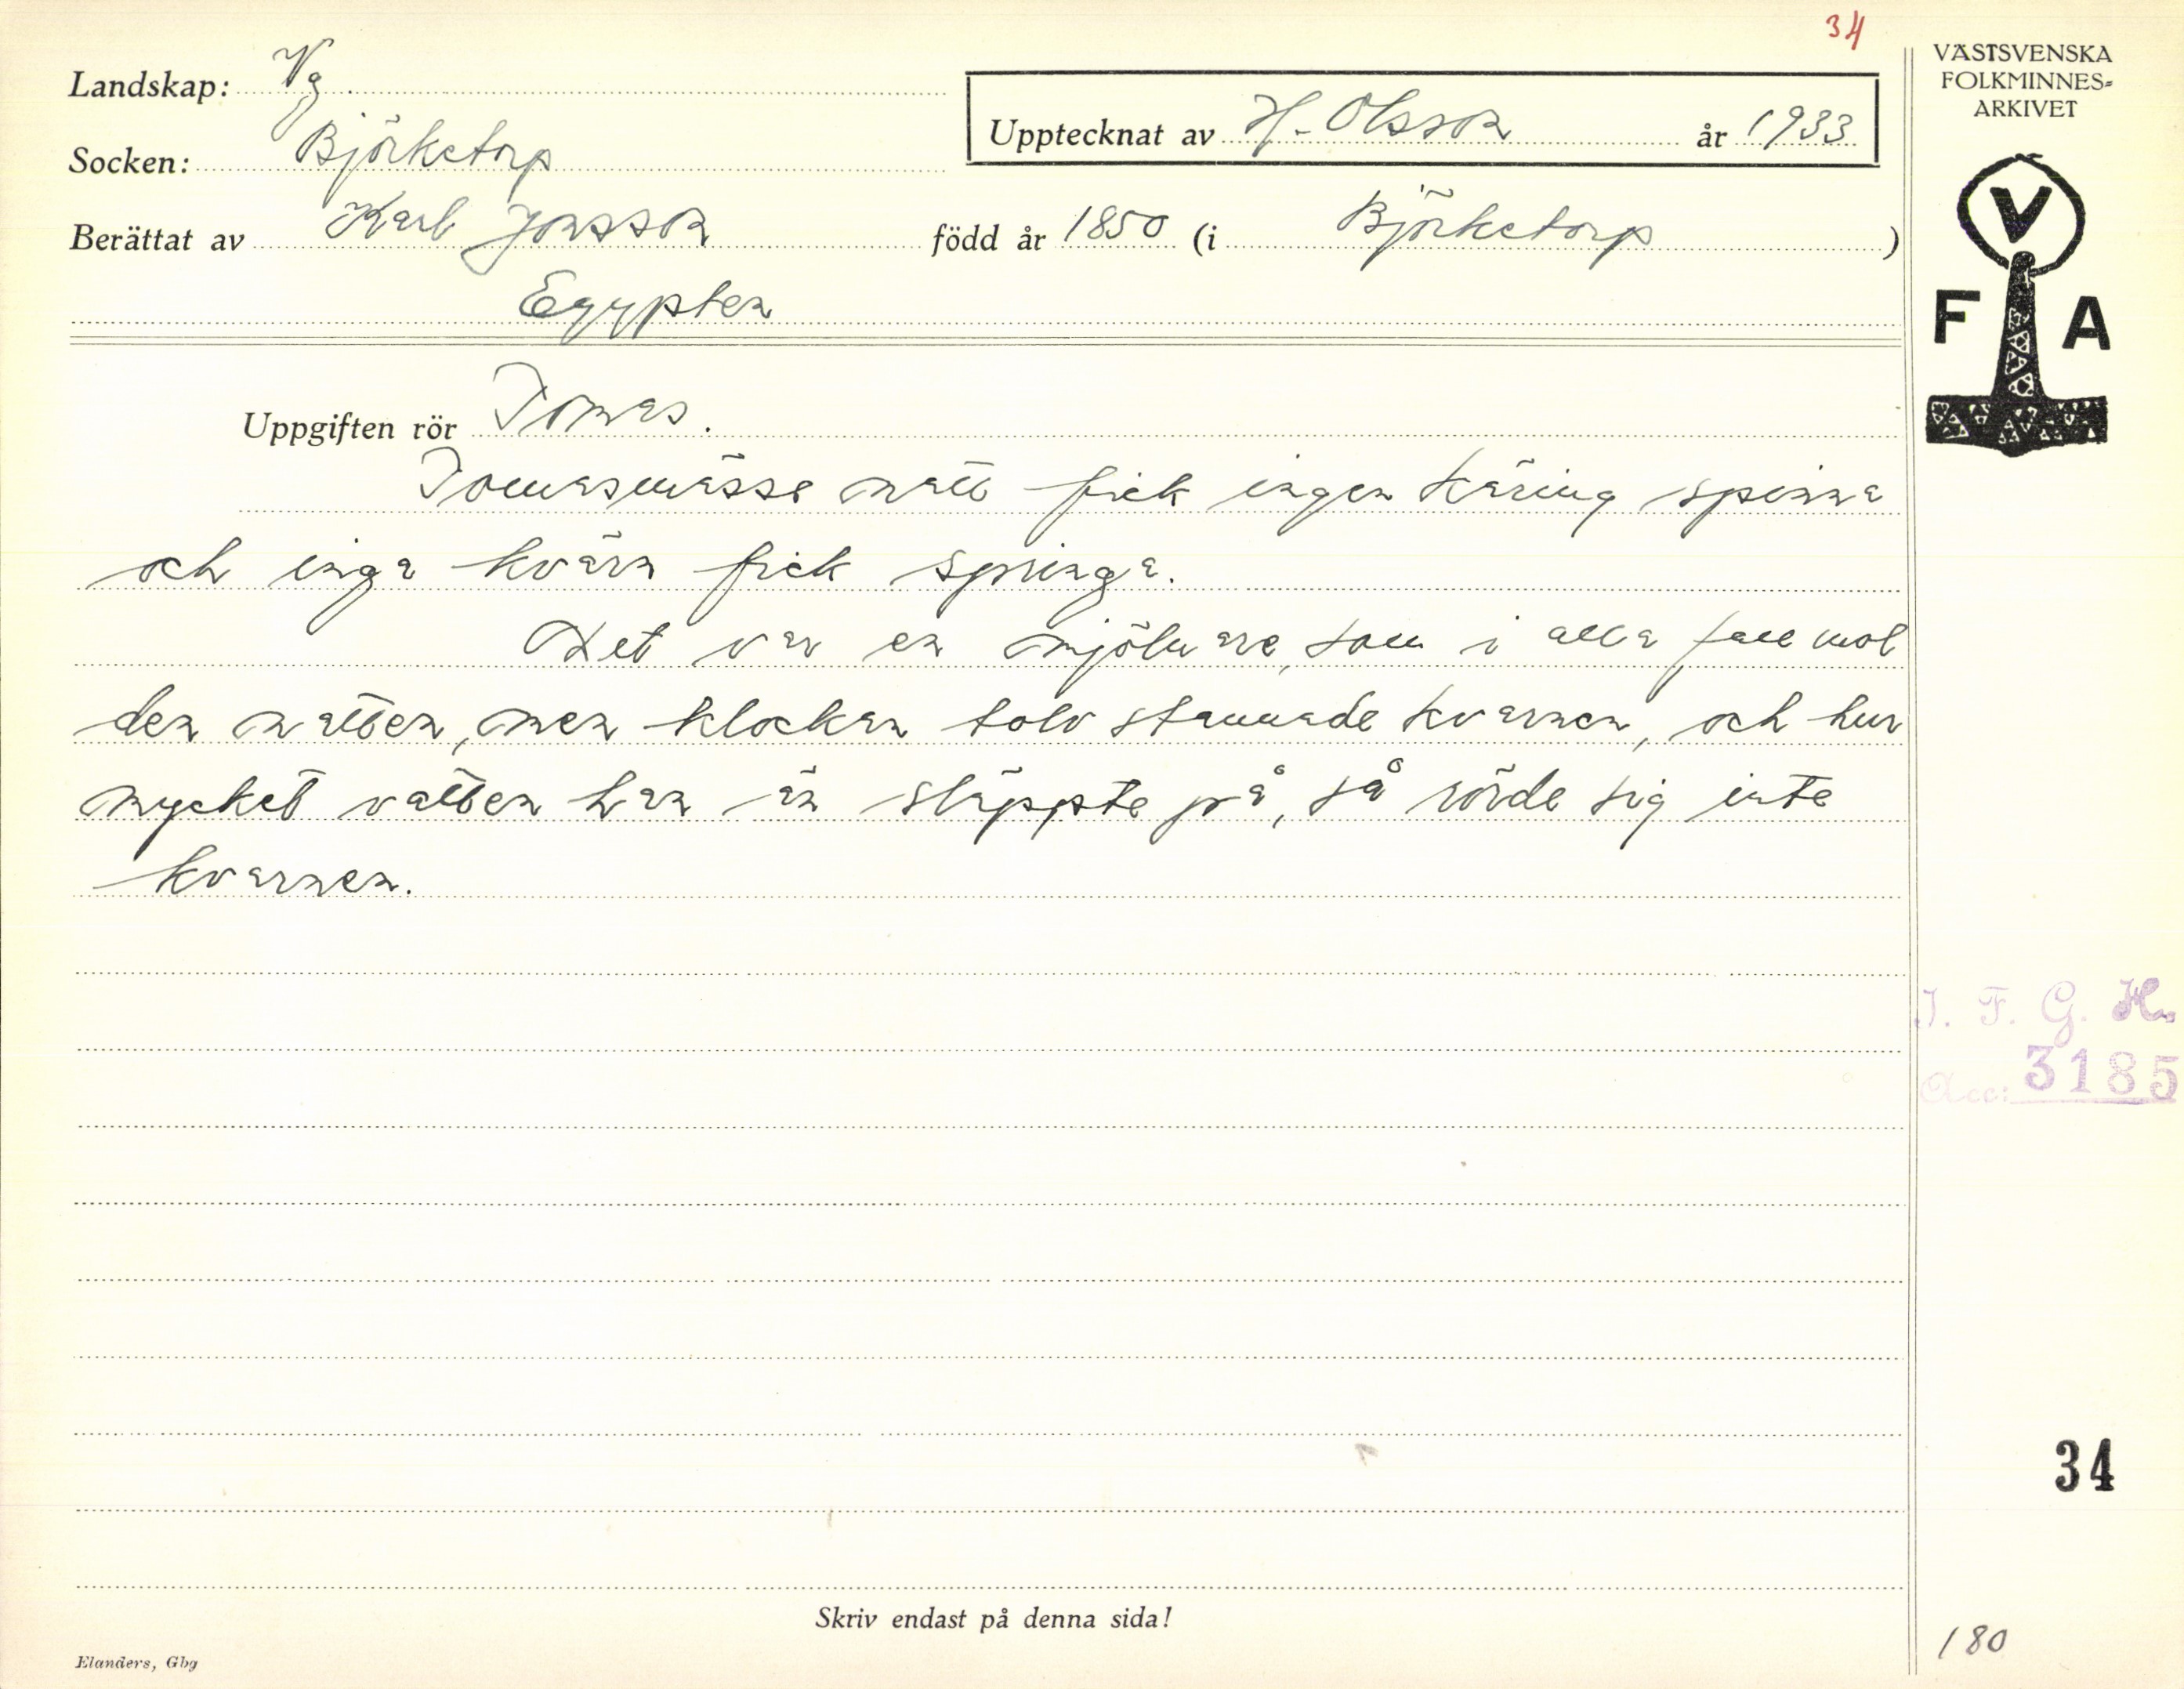 34
Landskap: Vg.
Socken: Björketorp
Upptecknat av H. Olsson år 1933.
Berättat av Karl Jonsson född år 1850 (i Björketorp)
Egypten
Uppgiften rör Tomas.
Tomasmässe natt fick ingen käring spinna
och inga kvärn fick springa.
Det var en mjölnare, som i alla fall mol
den natten, men klockan tolv stannade kvarnen, och hur
mycket vatten han än släppte på, så rörde sig inte
kvarnen.
Skriv endast på denna sida!
Elanders, Gbg
VÄSTSVENSKA
FOLKMINNES-
ARKIVET
V
F A
I. F. G. H.
Acc: 3185
34
180